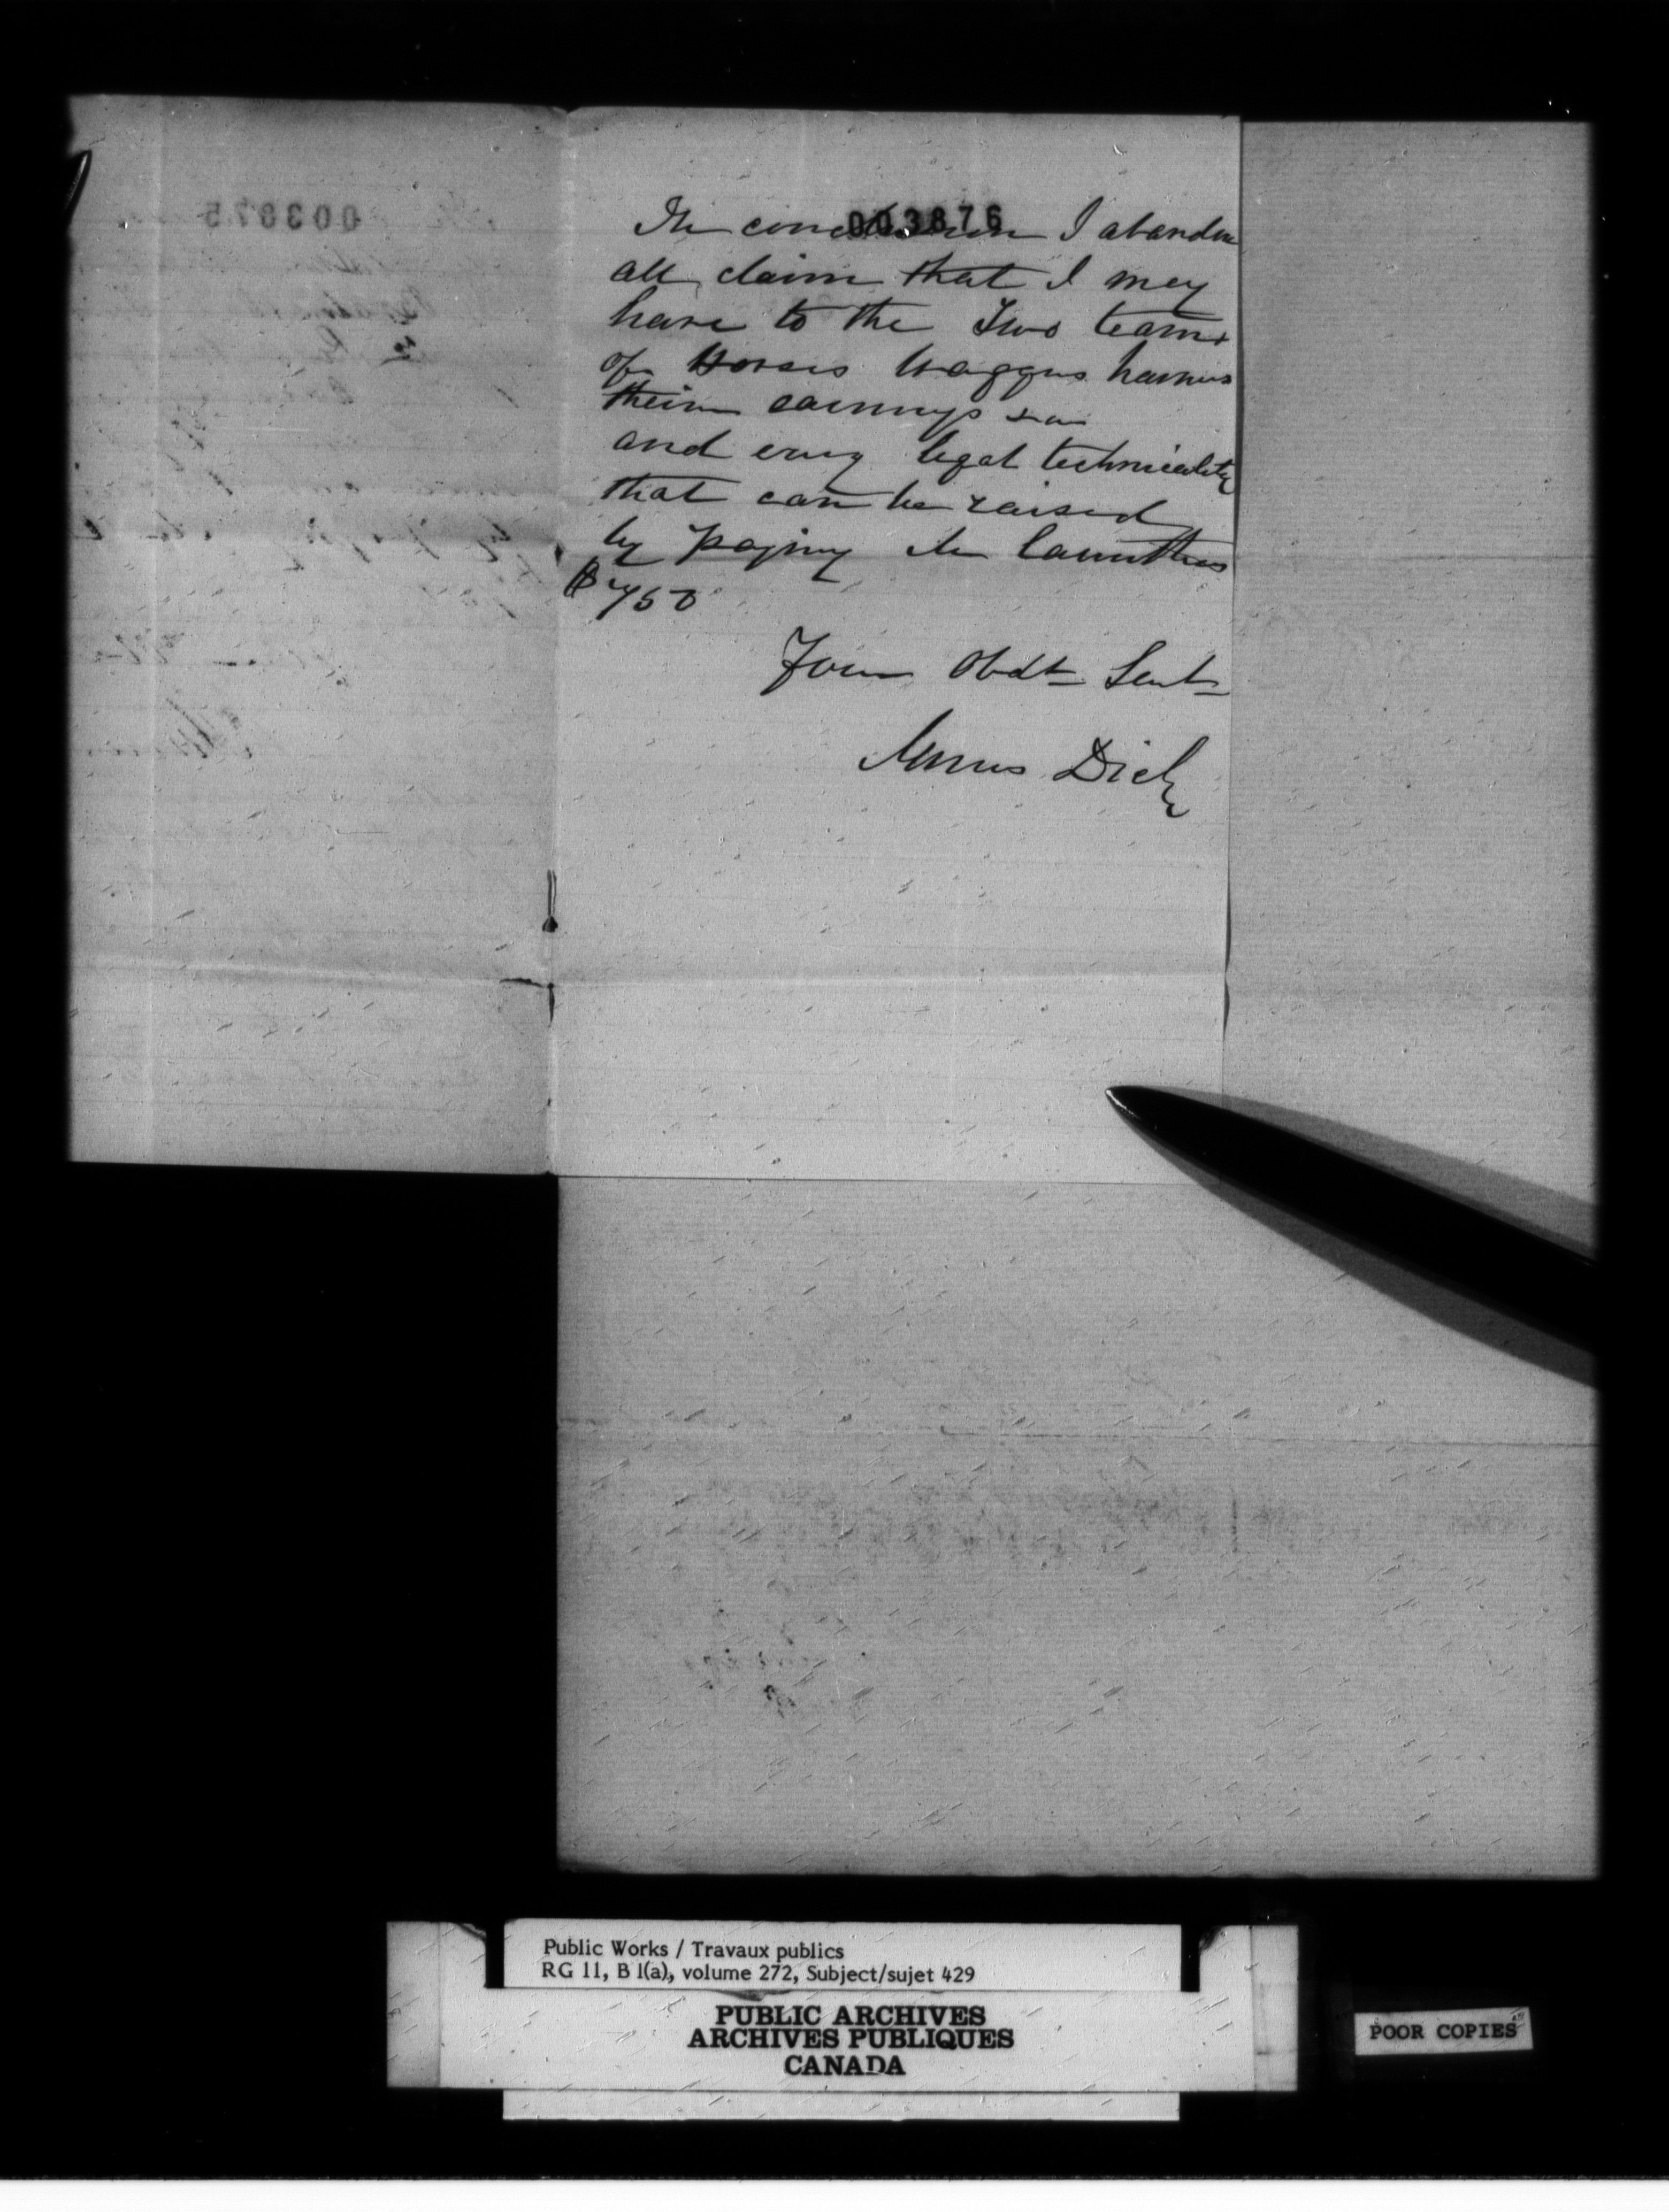 003876
In conclusion I abandon
all claim that I may
have to the Two teams
of Horses Waggons harness
their earnings
and every legal technicality
that can be raised
by paying
$750
Your Obdt Sevt
Dick
003875
Public Works / Travaux publics
RG 11, B 1(a), volume 272, Subject/sujet 429
PUBLIC ARCHIVES
ARCHIVES PUBLIQUES
CANADA
POOR COPIES